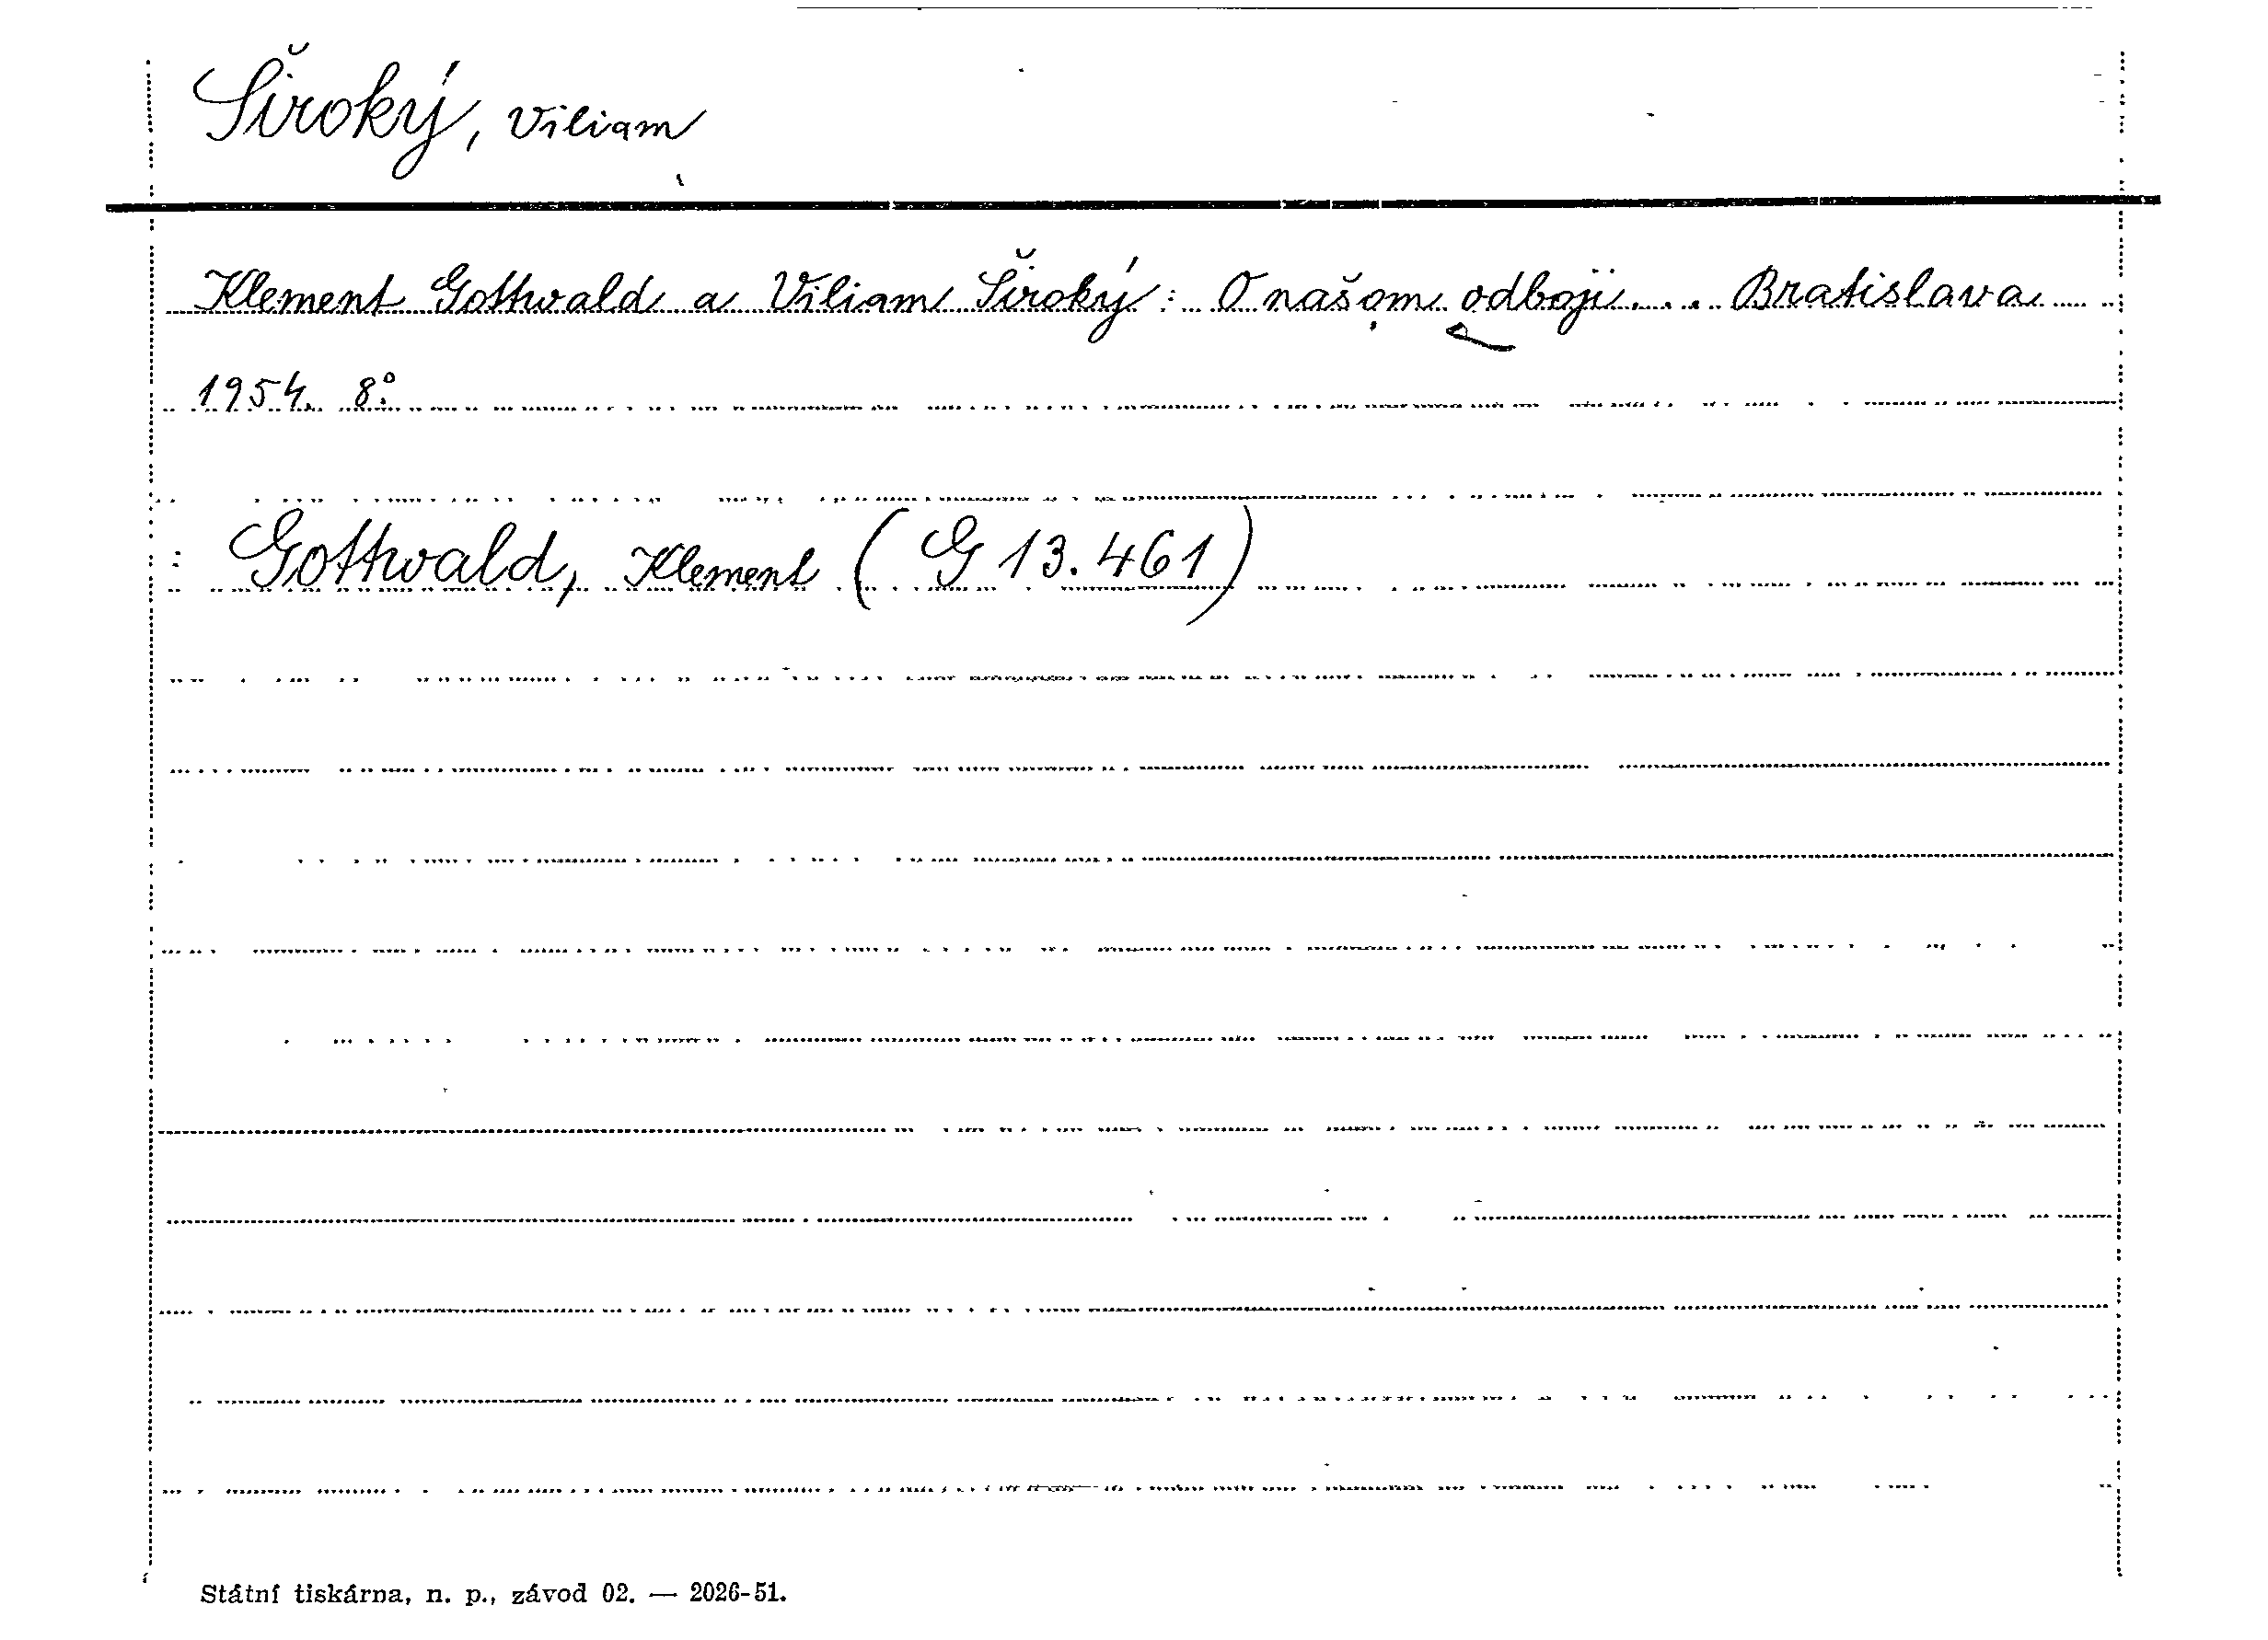 Široký, Viliam
Klement Gottwald a Viliam Široký: O našom odboji... Bratislava
1954. 8°.
Gottwald, Klement (G 13.461)
Státní tiskárna, n. p., závod 02. — 2026-51.